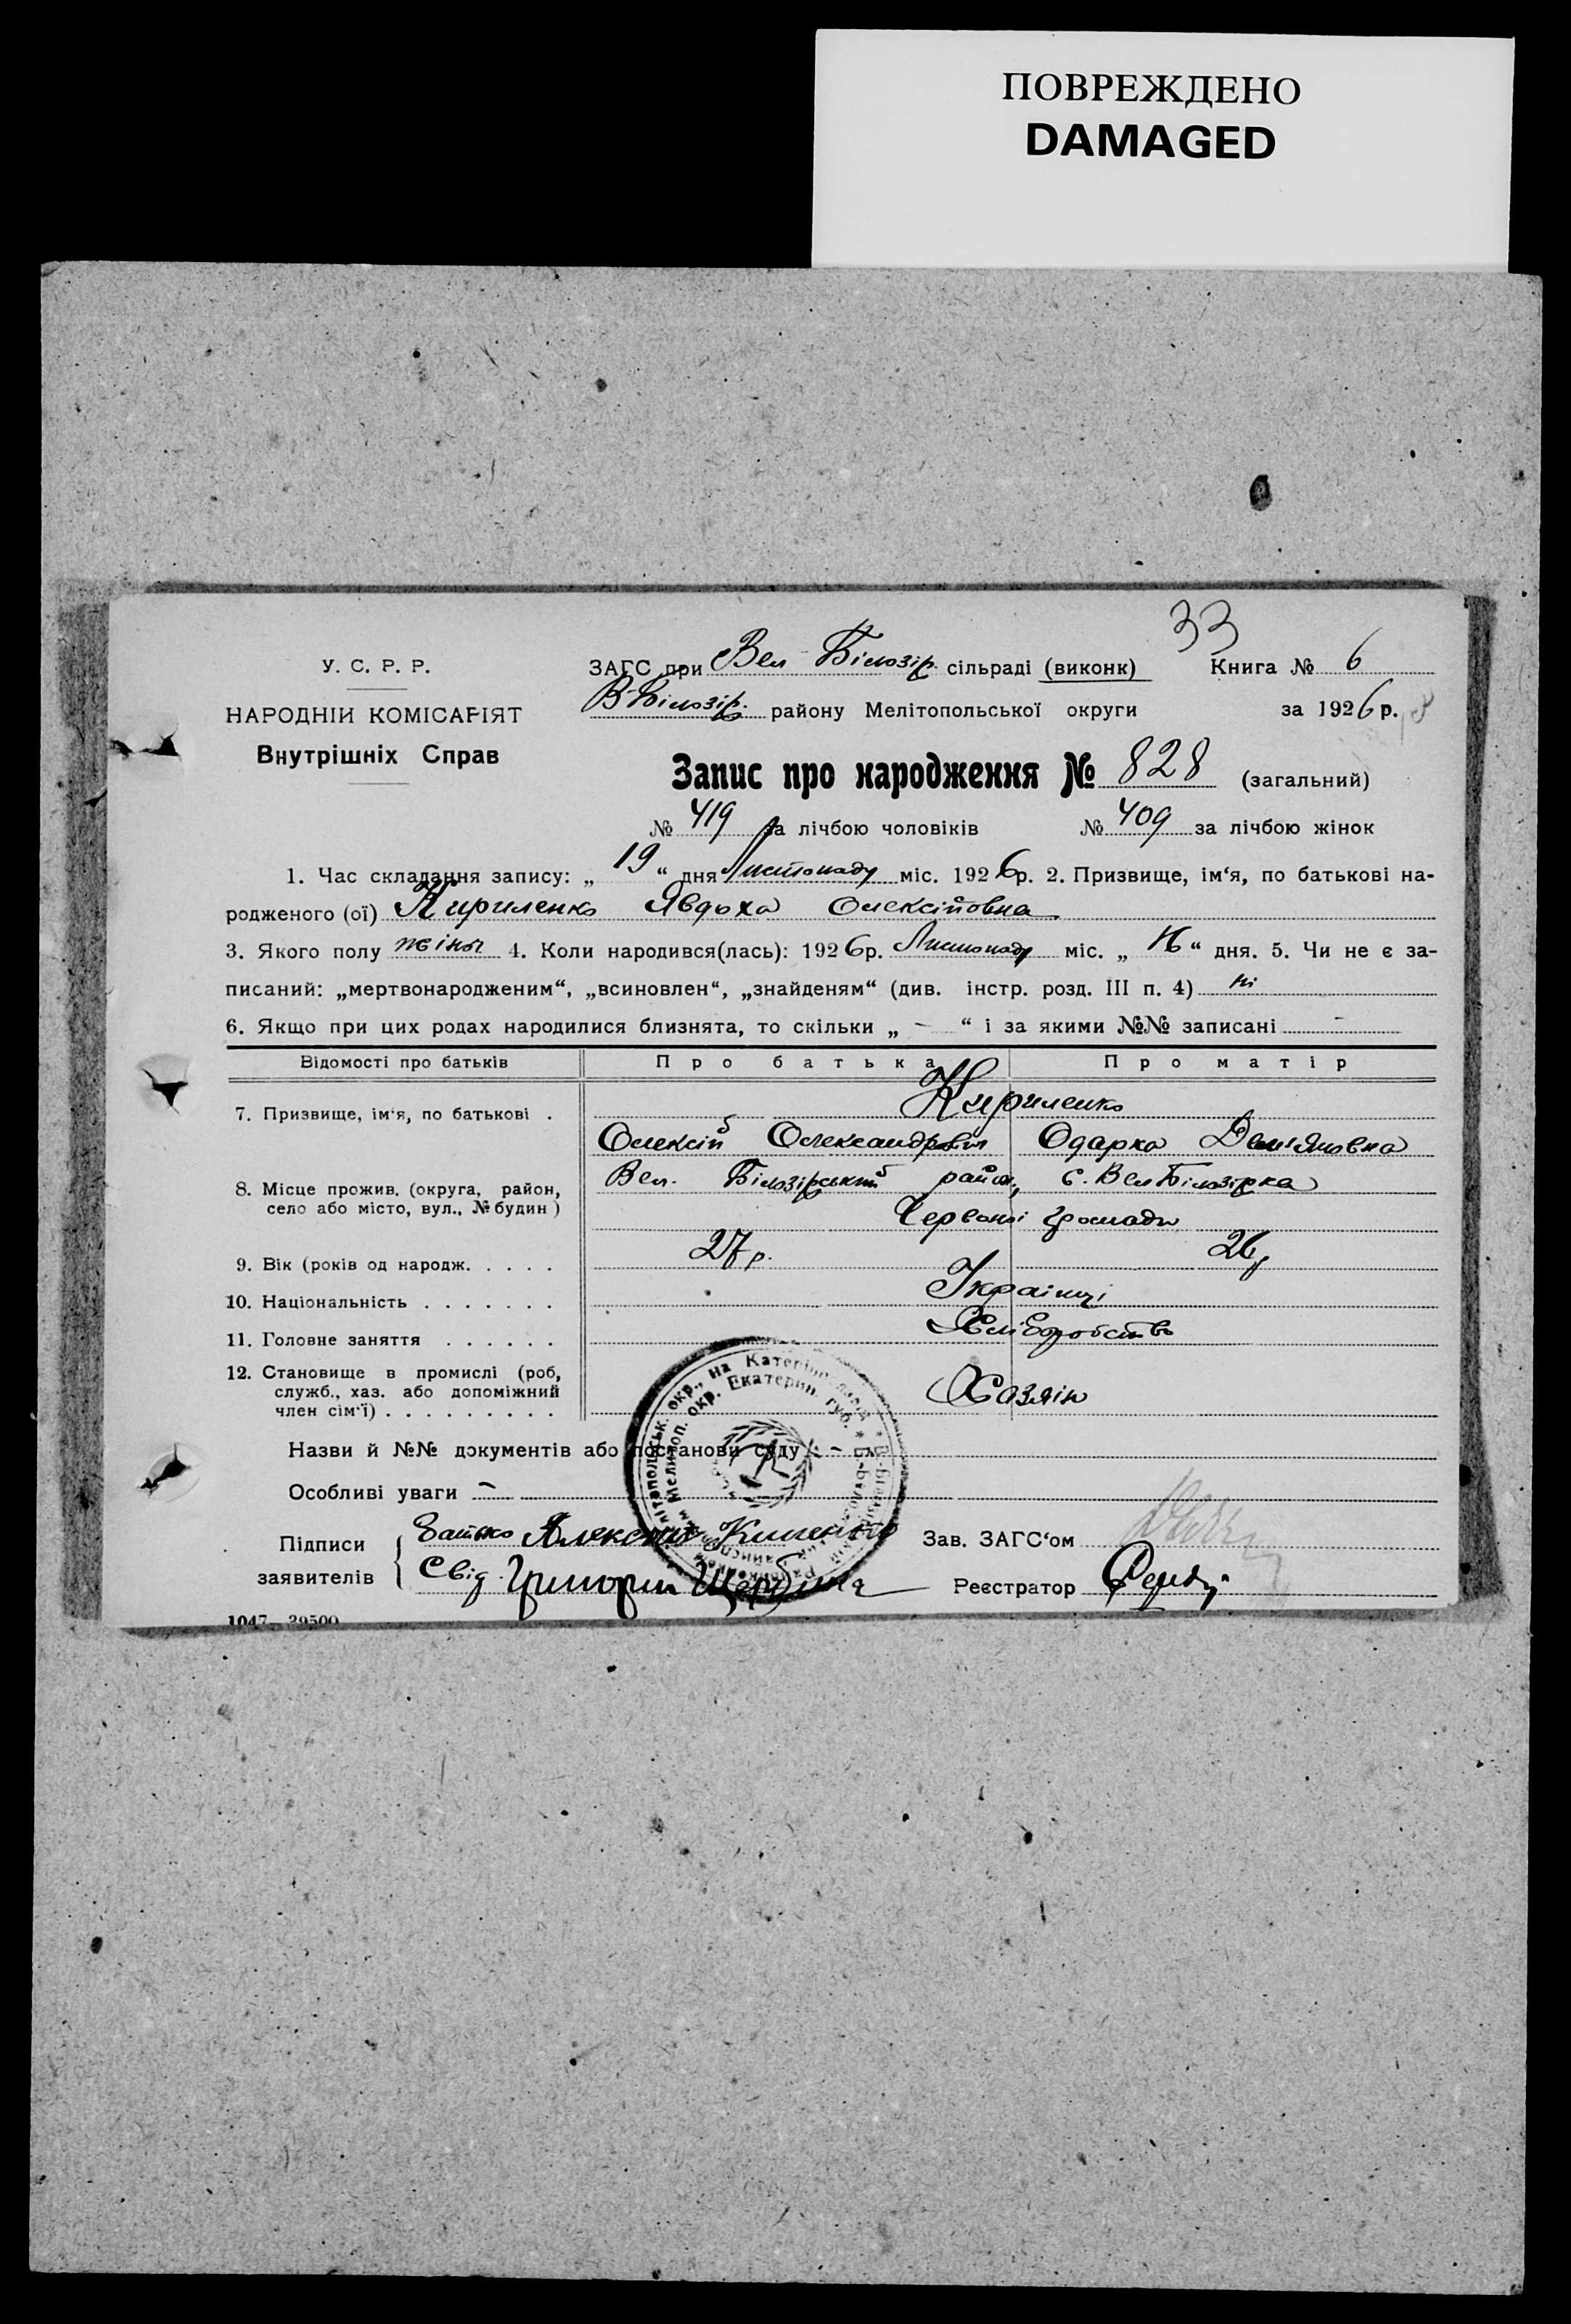 ПОВРЕЖДЕНО
DAMAGED
33
У. С. Р. Р.
ЗАГС при Вел Білозір. сільраді (виконк) Книга № 6
НАРОДНІЙ КОМІСАРІЯТ
В-Білозір. району Мелітопольської округи за 1926 р.
Внутрішніх Справ
Запис про народження № 828 (загальний)
№ 419 за лічбою чоловіків № 409 за лічбою жінок
1. Час складання запису: „ 19 “ дня Листопаду міс. 1926 р. 2. Призвище, ім‘я, по батькові на-
родженого (ої) Кириленко Явдоха Олексіівовна
3. Якого полу жіноч 4. Коли народився(лась): 1926 р. Листопаду міс. „ “ дня. 5. Чи не є за-
писаний: „мертвонародженим“, „всиновлен“, „знайденям“ (див. інстр. розд. III п. 4) ні
6. Якщо при цих родах народилися близнята, то скільки „ – “ і за якими №№ записані –
Відомості про батьків Про батька Про матір
7. Призвище, ім‘я, по батькові . Кириленко
Олексій Олександрович Одарка Дем‘яновна
8. Місце прожив. (округа, район, село або місто, вул., № будин) Вел. Білозірський район, с. Вел Білозірка
Червоної громади
9. Вік (років од народж. . . . . 27 р. 26 р
10. Національність . . . . . . . Українці
11. Головне заняття . . . . . . Хліборобство
12. Становище в промислі (роб,
служб., хаз. або допоміжний
член сім‘ї) . . . . . . . . . Хазяін
Назви й №№ документів або постанови суду –
Особливі уваги –
Підписи заявителів
Батько Алексей
Свід. Григорий Щербина
Зав. ЗАГС‘ом
Реєстратор
1047—39500